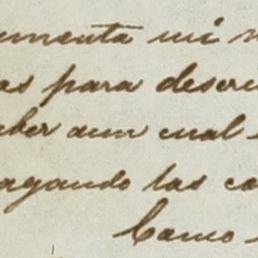 umenta mi
as para descri
ber aun cual
agando las ca
Como